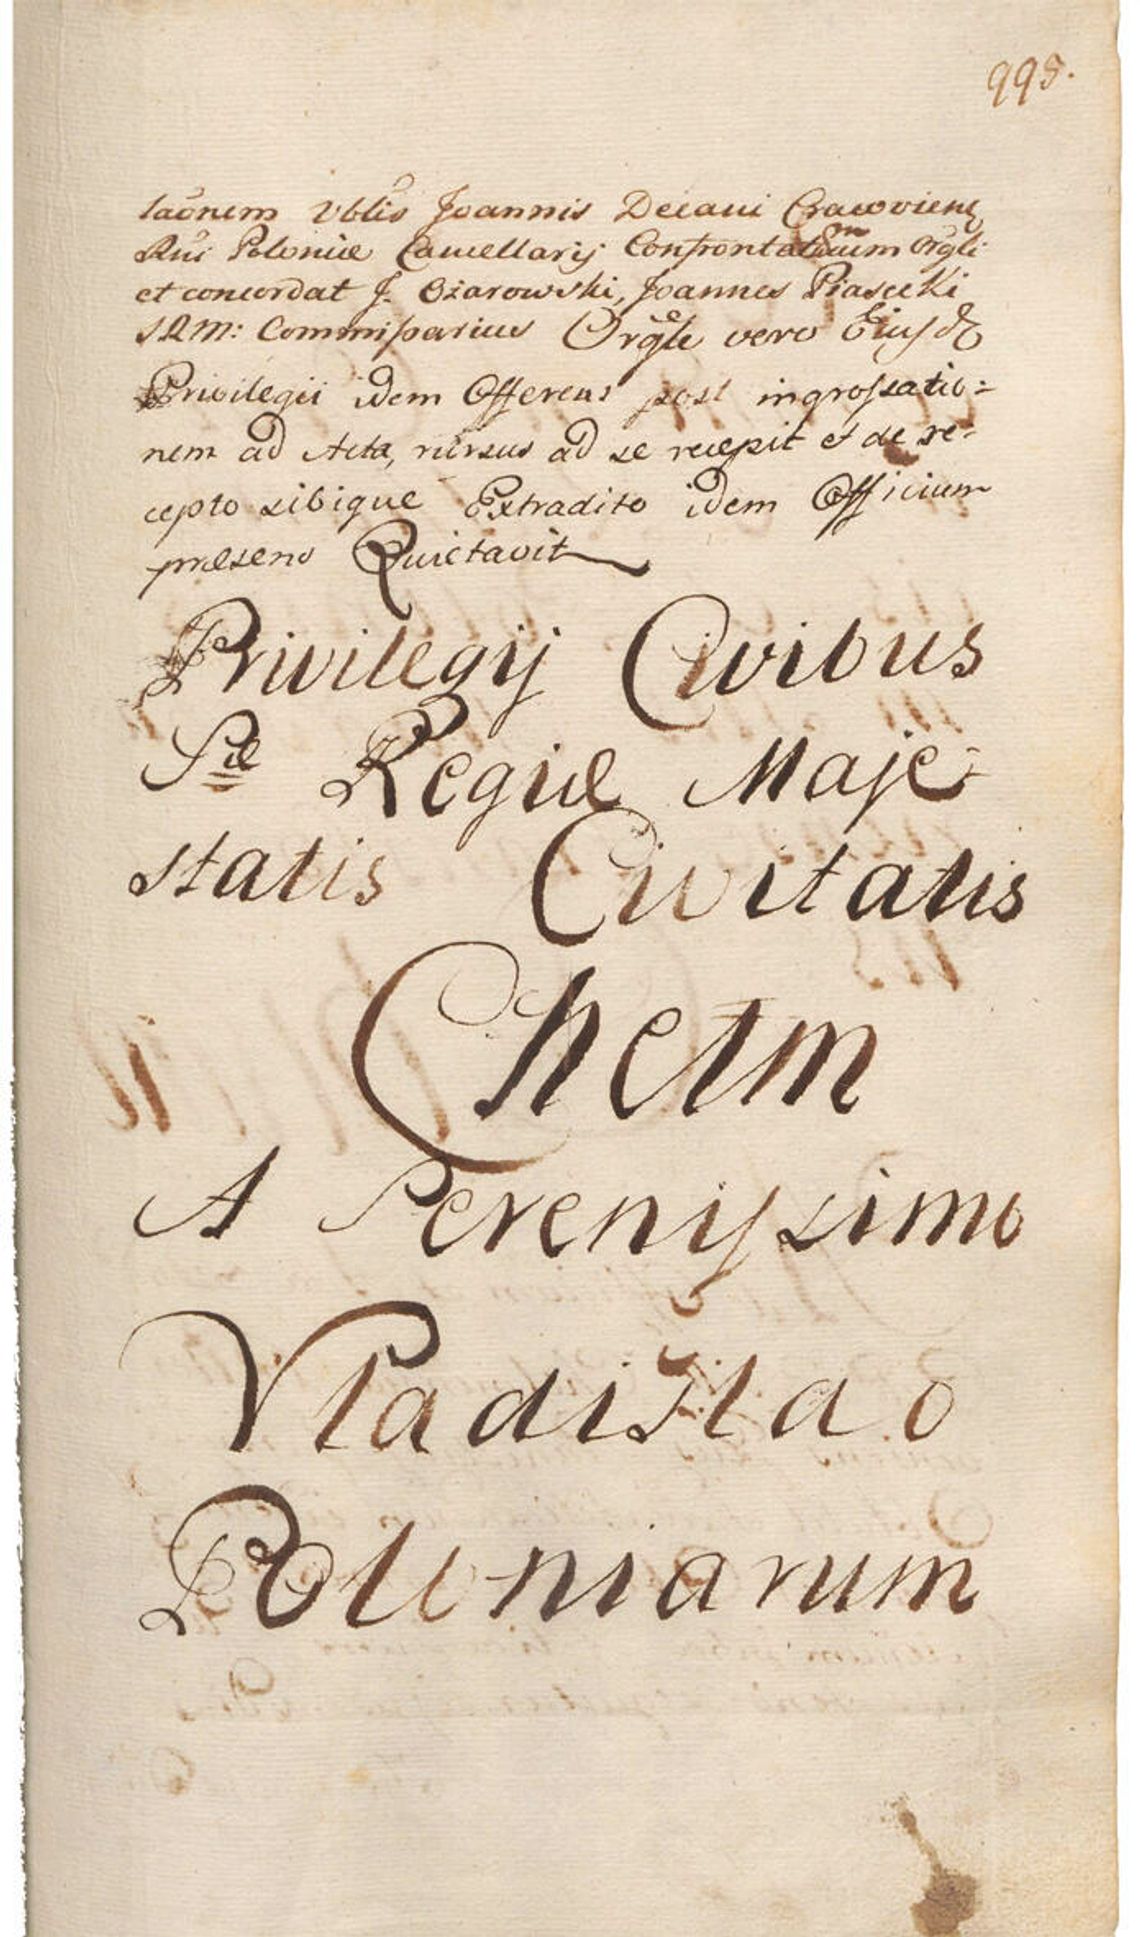 995.
laõnem Vblis Joannis Decani Cracovien
Rni Poloniæ Cancellarij Confrontatum Orgli
et concordat J. Ożarowski, Joannes Piasecki
SRM: Commissarius Orgle vero Ejusd
Privilegii idem Offerens post ingrossatio=
nem ad Acta, rursus ad se recepit et de re-
cepto sibique Extradito idem Officium
præsens Quietavit
Privilegij Civibus
Sæ Regiæ Maje
statis Civitatis
Chełm
A Serenissimo
Vladislao
Poloniarum